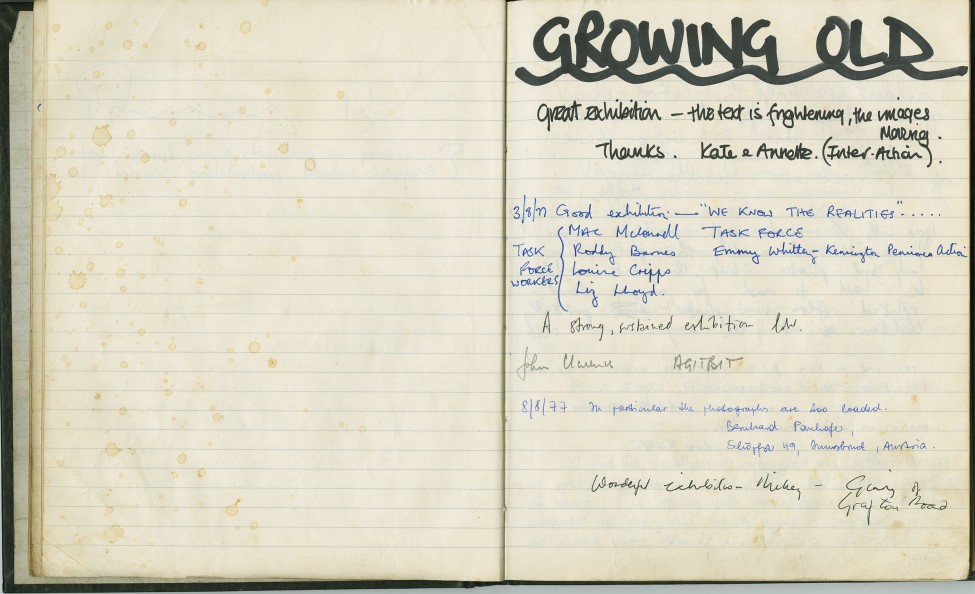 GROWING OLD
Great exhibition — the text is frightening, the images
Moving.
Thanks. Kate & Annette. (Inter-Action).
3/8/77 Good exhibition — "WE KNOW THE REALITIES".....
Mac McConnell TASK FORCE
TASK FORCE WORKERS
Roddy Barnes Emmy Whitley - Kennington Pensioners Action
Louise Cripps
Liz Lloyd.
A strong, sustained exhibition
John AGITBIT
8/8/77 In particular the photographs are too loaded.
Bernhard
49, Innsbruck, Austria.
Wonderful exhibition Mikey —
Grafton Road